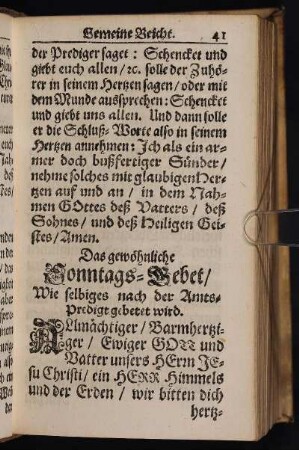 Gemeine Beicht. 41
der Prediger saget: Schencket und
giebt euch allen/ ꝛc. solle der Zuhö-
rer in seinem Hertzen sagen/ oder mit
dem Munde aussprechen: Schencket
und giebt uns allen. Und dann solle
er die Schluß-Worte also in seinem
Hertzen annehmen: Ich als ein ar-
mer doch bußfertiger Sünder/
nehme solches mit glaubigen Her-
tzen auf und an/ in dem Nah-
men GOttes deß Vatters/ deß
Sohnes/ und deß Heiligen Gei-
stes/ Amen.
Das gewöhnliche
Sonntags-Gebet/
Wie selbiges nach der Amts-
Predigt gebetet wird.
Allmächtiger/ Barmhertzi-
ger/ Ewiger GOTT und
Vatter unsers HErrn JE-
su Christi/ ein HERR Himmels
und der Erden/ wir bitten dich
hertz-